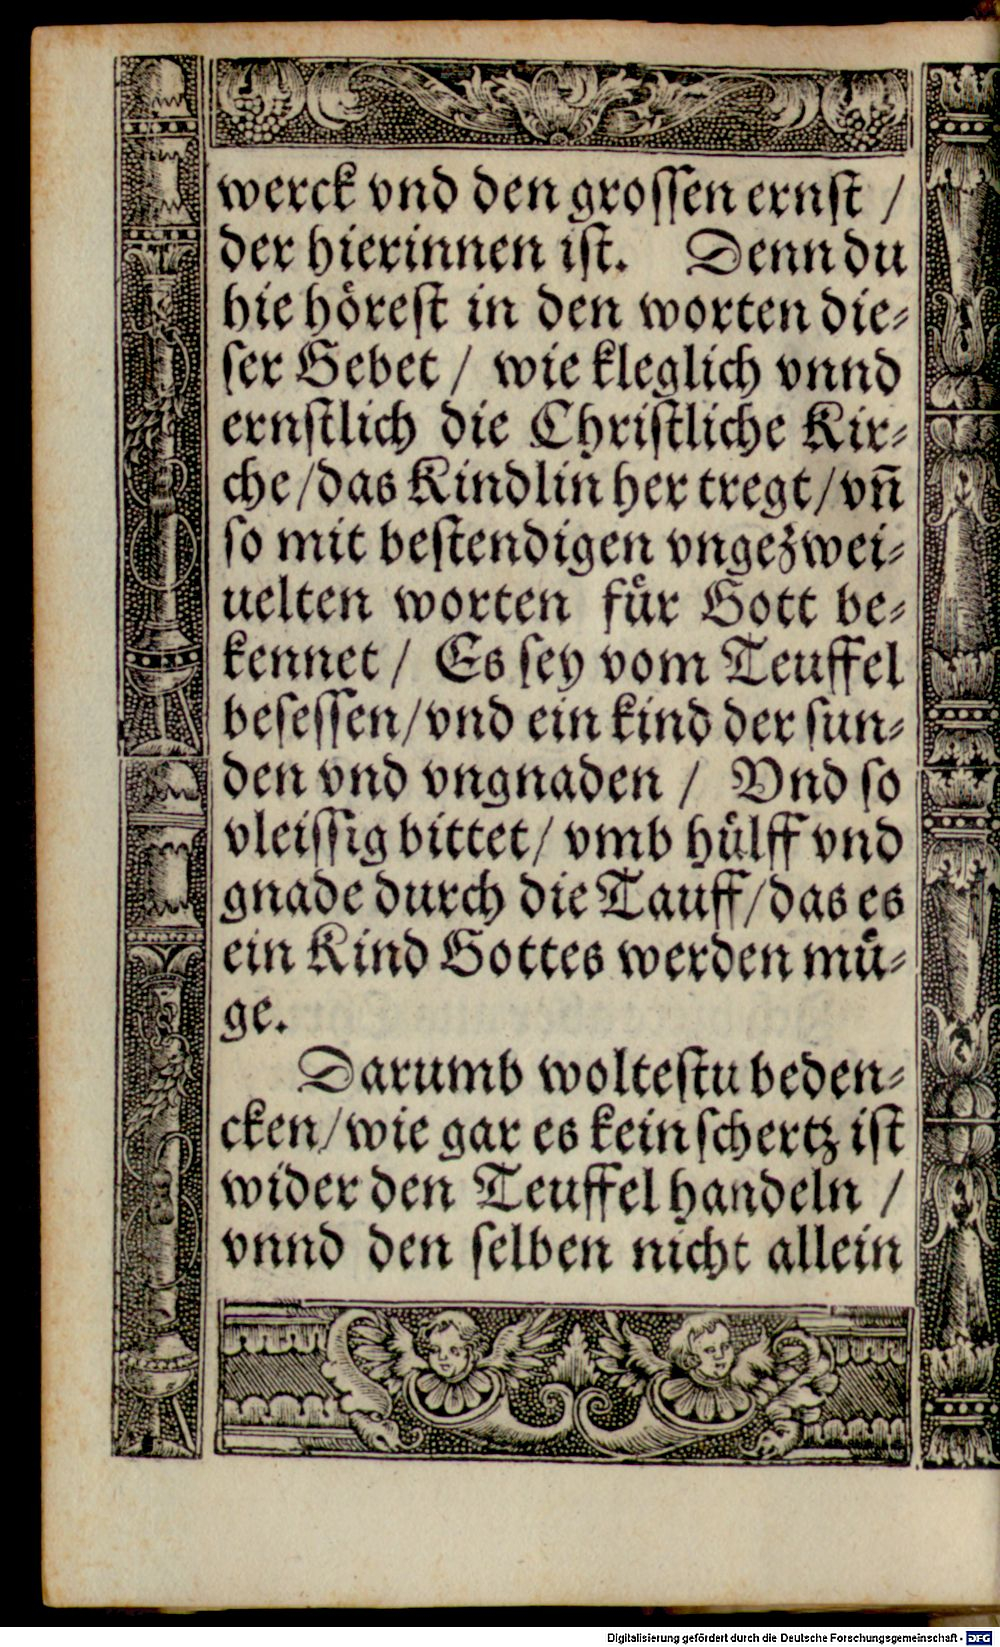 werck vnd den groſſen ernſt /
der hierinnen iſt. Denn du
hie höreſt in den worten die⸗
ſer Gebet / wie kleglich vnnd
ernſtlich die Chriſtliche Kir⸗
che / das Kindlin her tregt / vn̄
ſo mit beſtendigen vngezwei⸗
uelten worten für Gott be⸗
kennet / Es ſey vom Teuffel
beſeſſen / vnd ein kind der ſun⸗
den vnd vngnaden / Vnd ſo
vleiſſig bittet / vmb hülff vnd
gnade durch die Tauff / das es
ein Kind Gottes werden mü⸗
ge.
Darumb wolteſtu beden⸗
cken / wie gar es kein ſchertz iſt
wider den Teuffel handeln /
vnnd den ſelben nicht allein
Digitalisierung gefördert durch die Deutsche Forschungsgemeinschaft - DFG